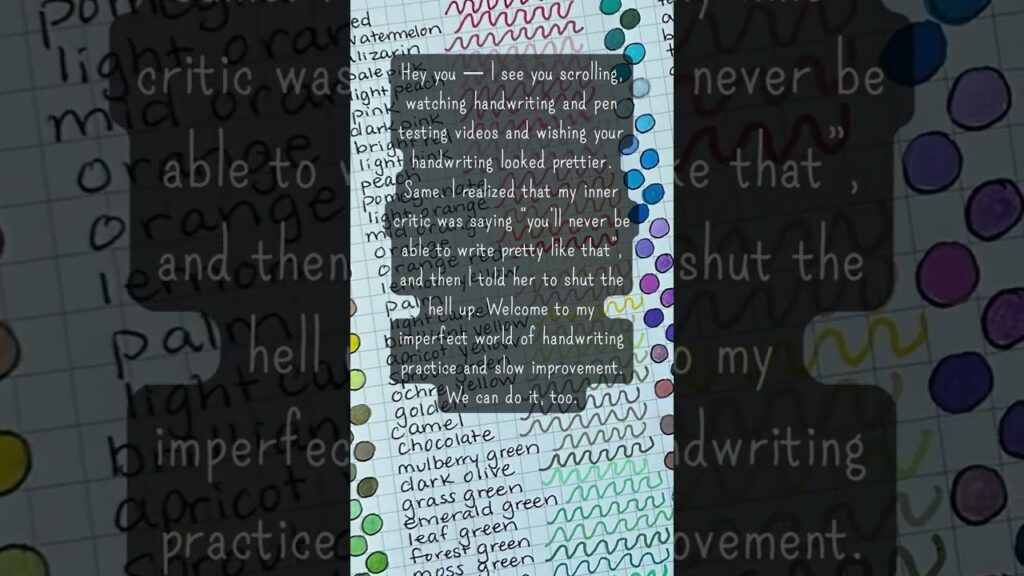 ed
watermelon
alizarin
pale pink
light peach
pink
dark pink
light pink
peach
light orange
mid orange
orange
Hey you — I see you scrolling,
watching handwriting and pen
testing videos and wishing your
handwriting looked prettier.
Same. I realized that my inner
critic was saying “you’ll never be
able to write pretty like that”,
and then I told her to shut the
hell up. Welcome to my
imperfect world of handwriting
practice and slow improvement.
We can do it, too.
palm
golden
camel
chocolate
mulberry green
dark olive
grass green
emerald green
leaf green
forest green
moss green